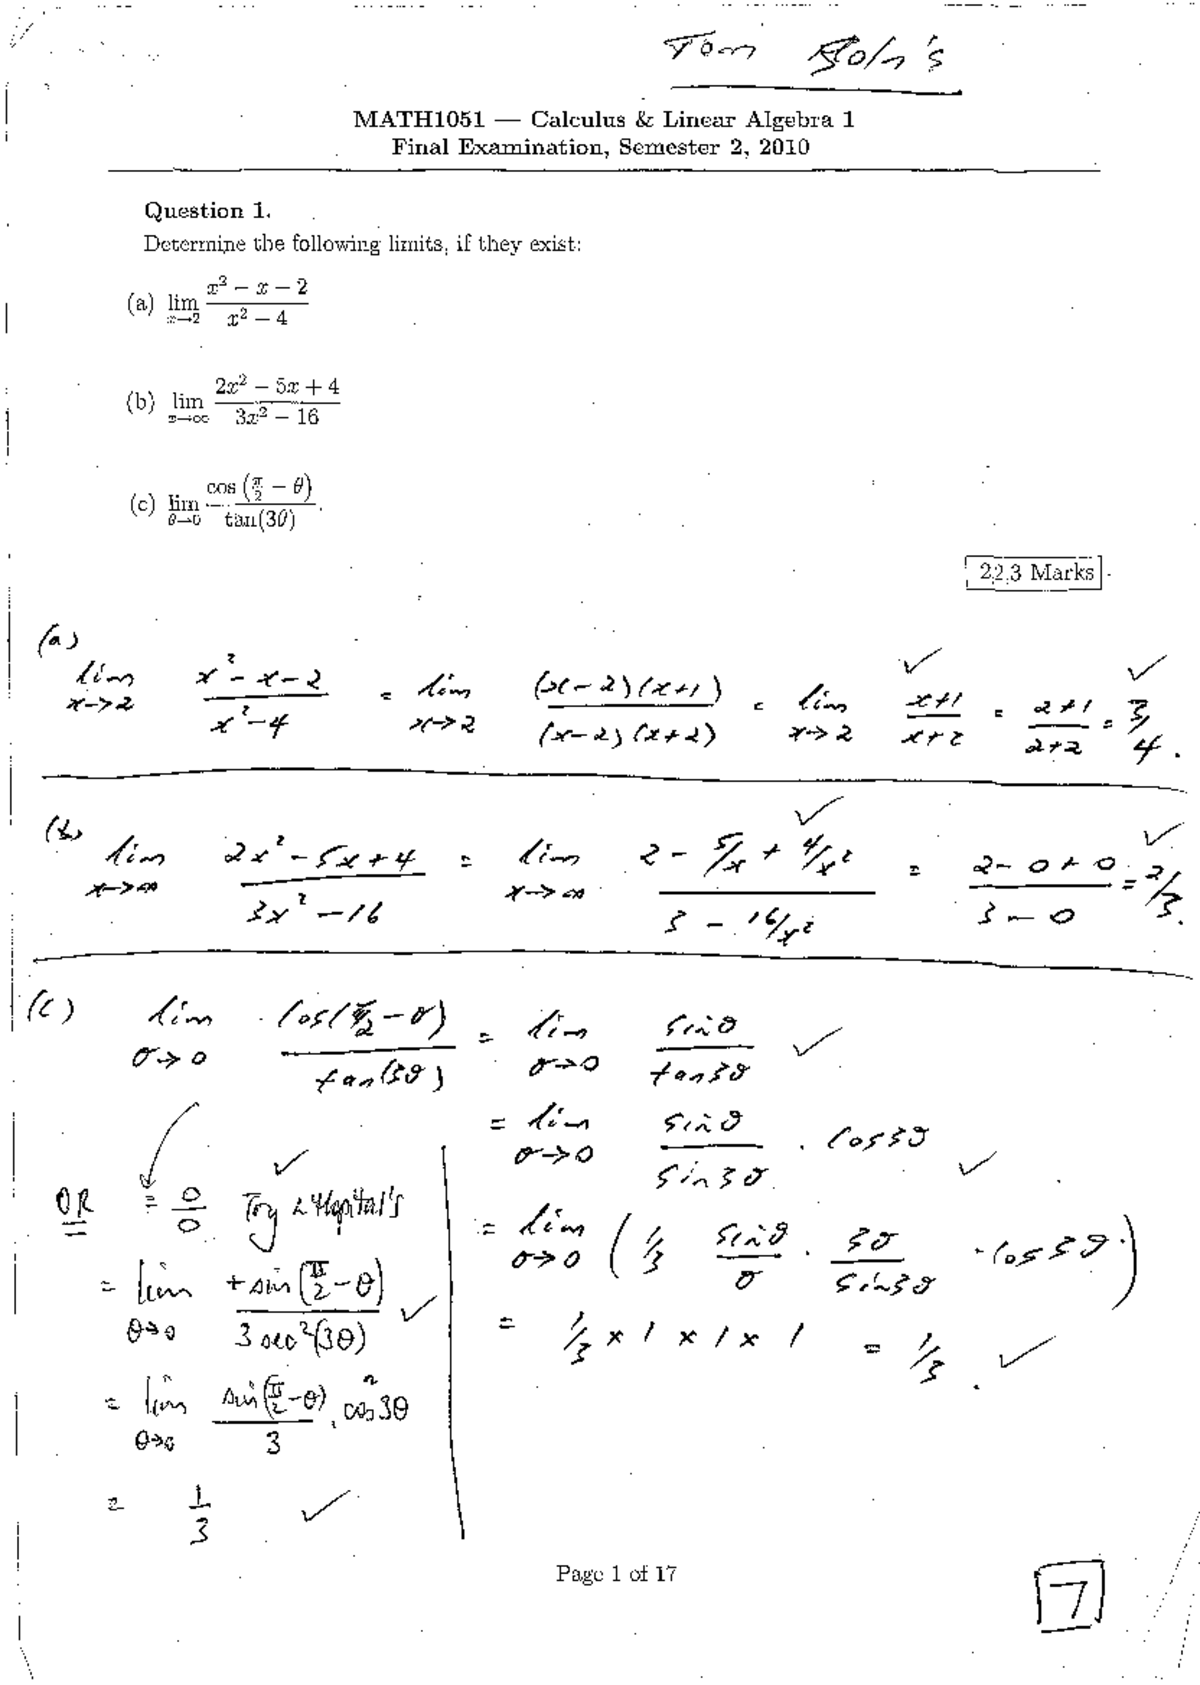 Tom
MATH1051 — Calculus & Linear Algebra 1
Final Examination, Semester 2, 2010
Question 1.
Determine the following limits, if they exist:
(a) lim x→2 (x² − x − 2)/(x² − 4)
(b) lim x→∞ (2x² − 5x + 4)/(3x² − 16)
(c) lim θ→0 cos(π/2 − θ)/tan(3θ).
2,2,3 Marks
(a)
lim x→2 (x² − x − 2)/(x² − 4) = lim x→2 (x−2)(x+1)/(x−2)(x+2) = lim x→2 (x+1)/(x+2) ✓ = (2+1)/(2+2) = 3/4. ✓
(b) lim x→∞ (2x² − 5x + 4)/(3x² − 16) = lim x→∞ (2 − 5/x + 4/x²)/(3 − 16/x²) ✓ = (2 − 0 + 0)/(3 − 0) = 2/3. ✓
(c) lim θ→0 cos(π/2 − θ)/tan(3θ) = lim θ→0 sinθ/tan3θ ✓
= lim θ→0 sinθ/sin3θ · cos3θ ✓
= lim θ→0 (1/3 sinθ/θ · 3θ/sin3θ · cos3θ)
= 1/3 × 1 × 1 × 1 = 1/3. ✓
OR = 0/0 Try L'Hopital's ✓
= lim θ→0 +sin(π/2 − θ)/3sec²(3θ) ✓
= lim θ→0 sin(π/2 − θ)/3 . cos²3θ
= 1/3 ✓
Page 1 of 17
7